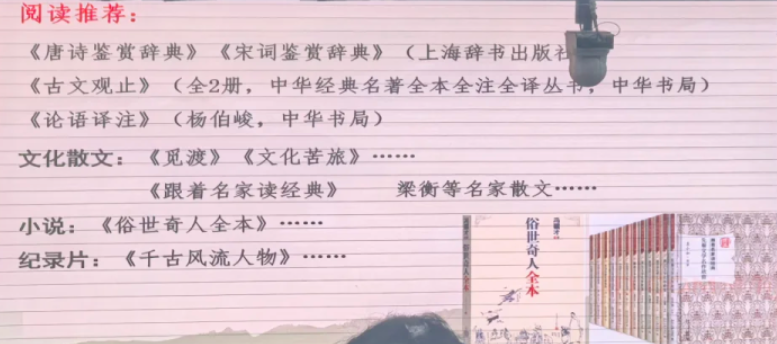 阅读推荐：
《唐诗鉴赏辞典》《宋词鉴赏辞典》（上海辞书出版社
《古文观止》（全2册，中华经典名著全本全注全译丛书，中华书局）
《论语译注》（杨伯峻，中华书局）
文化散文：《觅渡》《文化苦旅》……
《跟着名家读经典》 梁衡等名家散文……
小说：《俗世奇人全本》……
纪录片：《千古风流人物》……
俗世奇人全本
俗世奇人全本